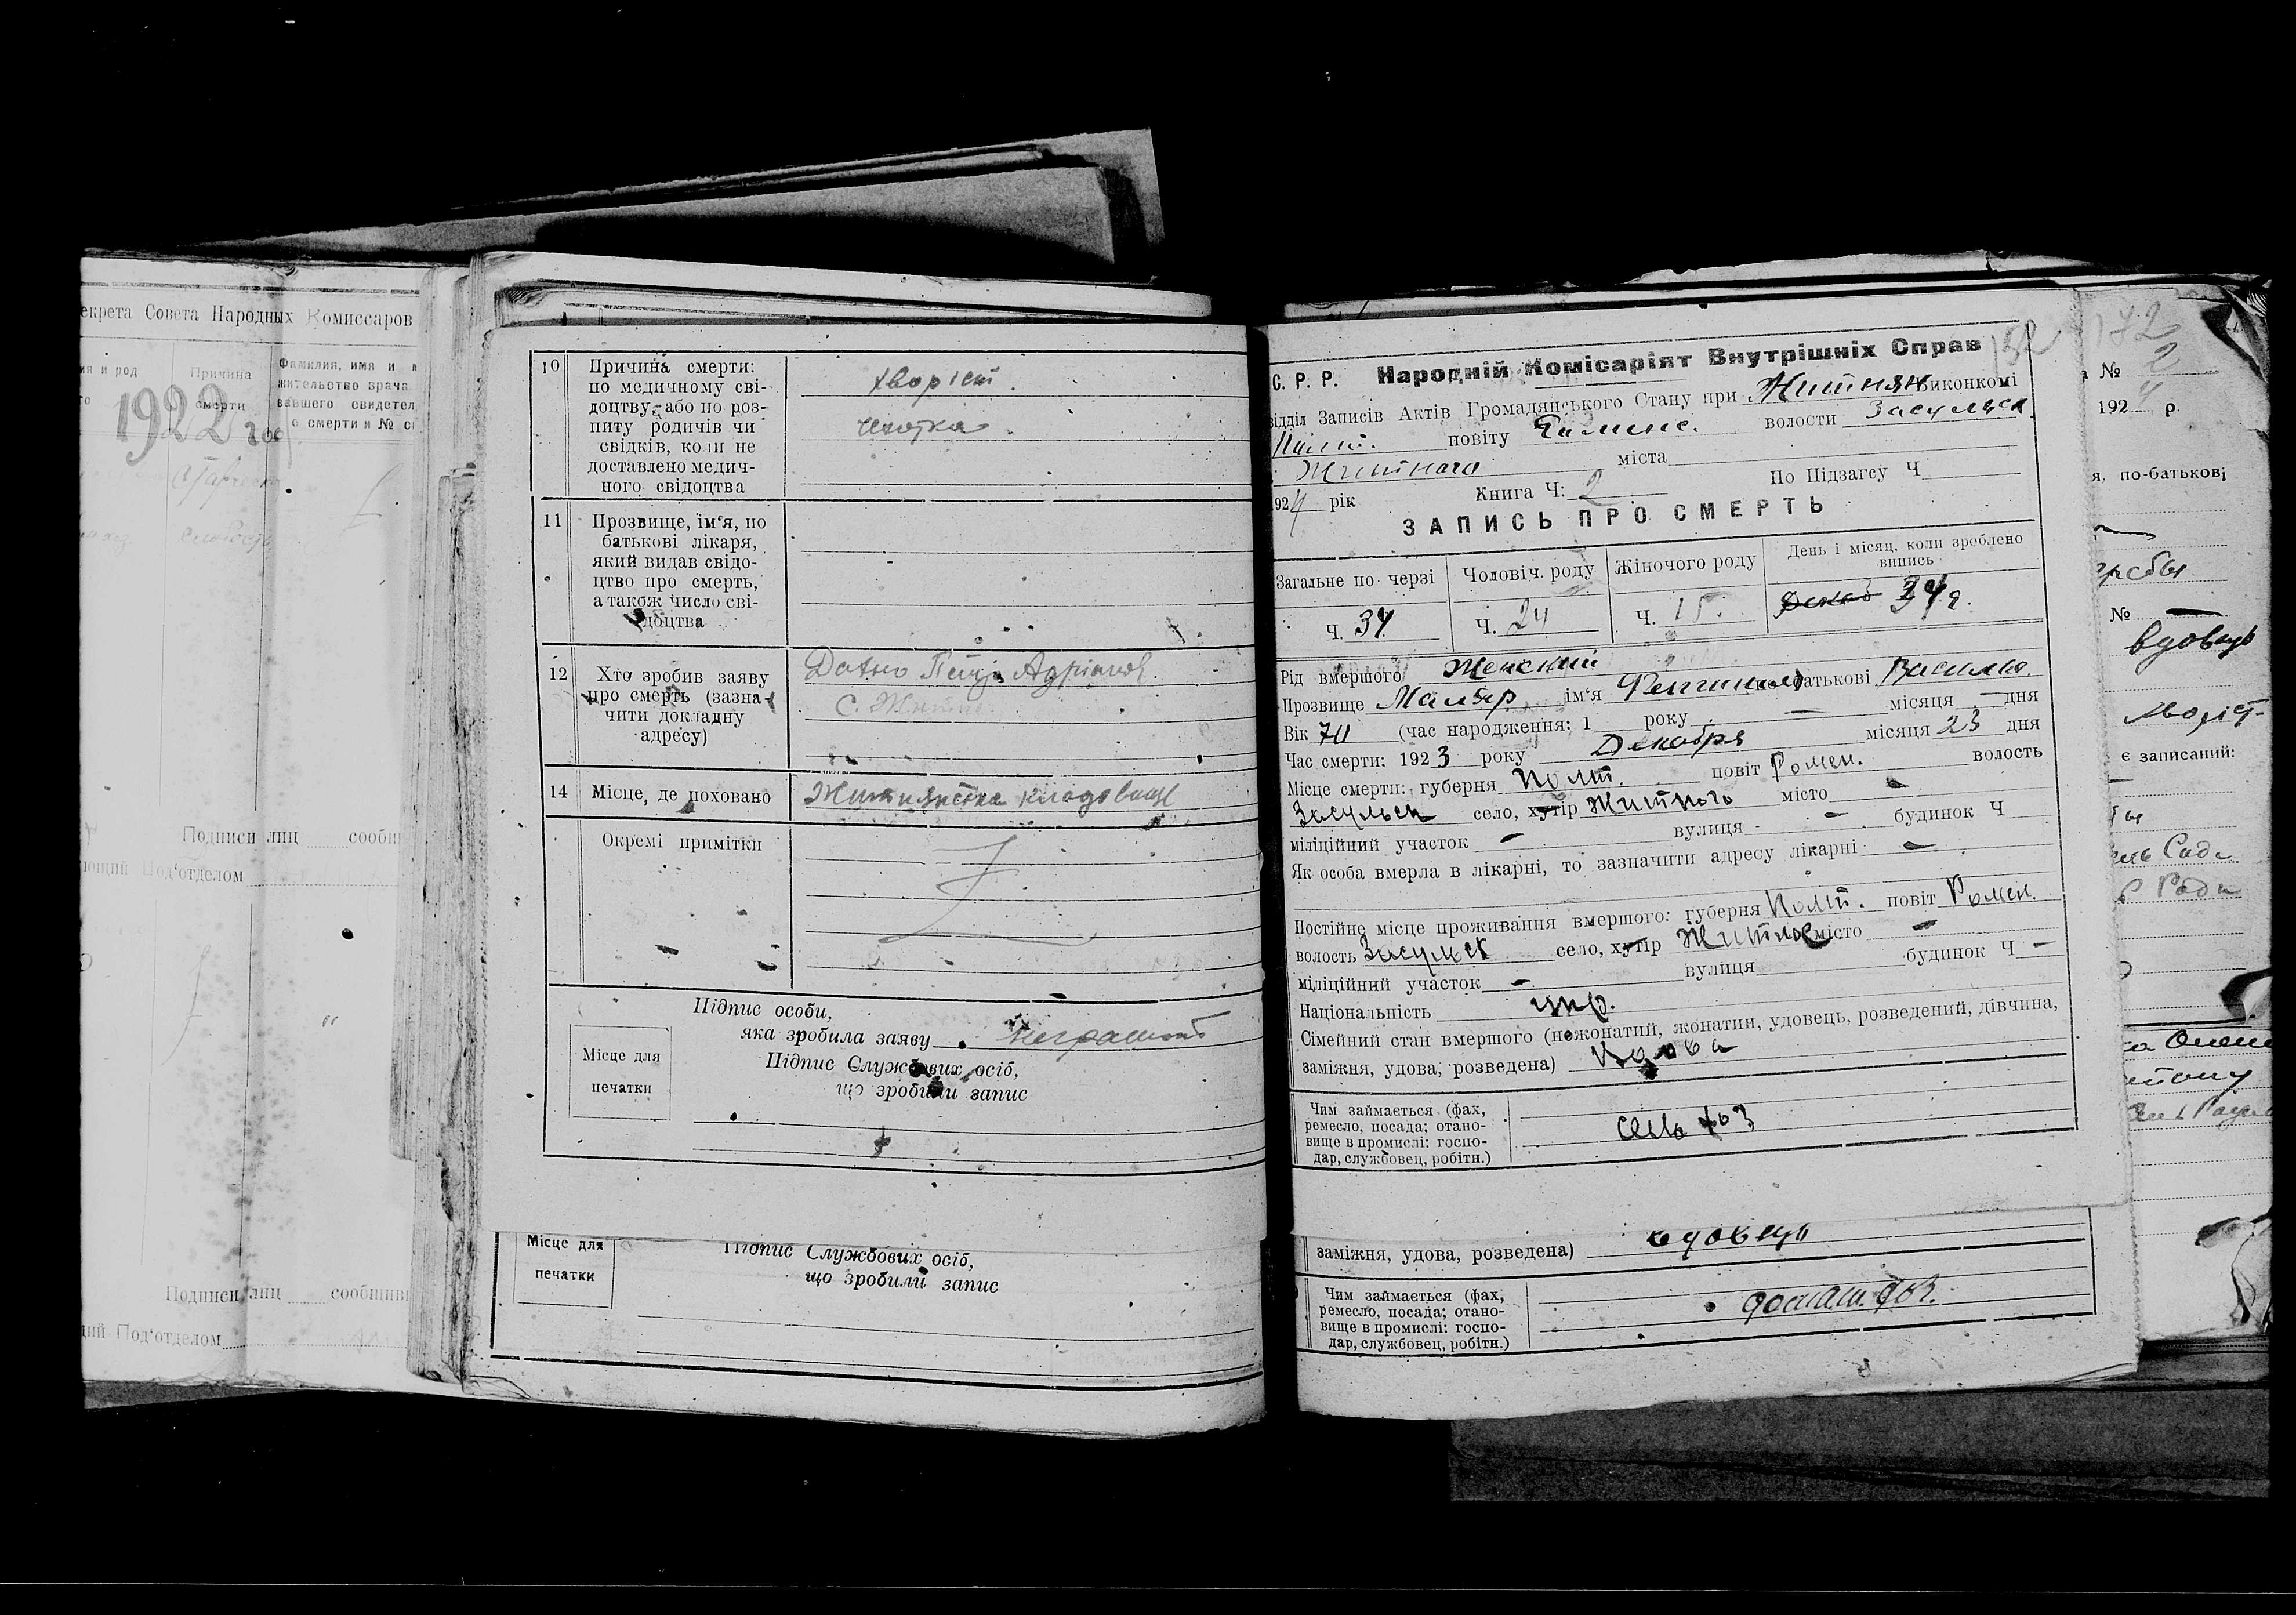 екрета Совета Народных Комиссаров
ия и род
Причина
смерти
Фамилия, имя и
жительство врача
вавшего свидетел
о смерти и №
1922 год
Подписи лиц сообщи
ющий Под'отделом
Подписи лиц сообщивш
щий Под'отделом
10 Причина смерти:
по медичному сві-
доцтву, або по роз-
питу родичів чи
свідків, коли не
доставлено медич-
ного свідоцтва
хворіст.
чихотка.
11 Прозвище, ім'я, по
батькові лікаря,
який видав свідо-
цтво про смерть,
а також число сві-
доцтва
12 Хто зробив заяву
про смерть (зазна-
чити докладну
адресу)
С. Житне
14 Місце, де поховано
кладовище
Окремі примітки
Підпис особи,
яка зробила заяву
Місце для
печатки
Підпис Службових осіб,
що зробили запис
Місце для
печатки
Підпис Службових осіб,
що зробили запис
152
С. Р. Р. Народній Комісаріят Внутрішніх Справ
відділ Записів Актів Громадянського Стану при Житнян виконкомі
Полт. повіту Роменс. волости Засульск.
Житного міста
1924 рік Книга Ч: 2 По Підзагсу Ч
ЗАПИСЬ ПРО СМЕРТЬ
Загальне по черзі
Чоловіч. роду
Жіночого роду
День і місяц, коли зроблено
випись
Ч. 34
Ч. 24
Ч. 15.
Рід вмершого Женский
Прозвище Маляр ім'я по батькові Василів.
Вік 70 (час народження: 1 року — місяця — дня
Час смерти: 1923 року Декабря місяця 23 дня
Місце смерти: губерня Полт. повіт Ромен. волость
Засульск село, хутір Житного місто —
міліційний участок — вулиця — будинок Ч
Як особа вмерла в лікарні, то зазначити адресу лікарні —
Постійне місце проживання вмершого: губерня Полт. повіт Ромен.
волость Засульск село, хутір Житное місто —
міліційний участок — вулиця будинок Ч —
Національність укр.
Сімейний стан вмершого (нежонатий, жонатий, удовець, розведений, дівчина,
заміжня, удова, розведена) Удова
Чим займається (фах,
ремесло, посада; стано-
вище в промислі: госпо-
дар, службовец, робітн.)
сель хоз
заміжня, удова, розведена) вдовець
Чим займається (фах,
ремесло, посада; стано-
вище в промислі: госпо-
дар, службовец, робітн.)
домаш. хоз.
172
№ 2
1924 р.
я, по-батькові
№ —
вдовець
є записаний: